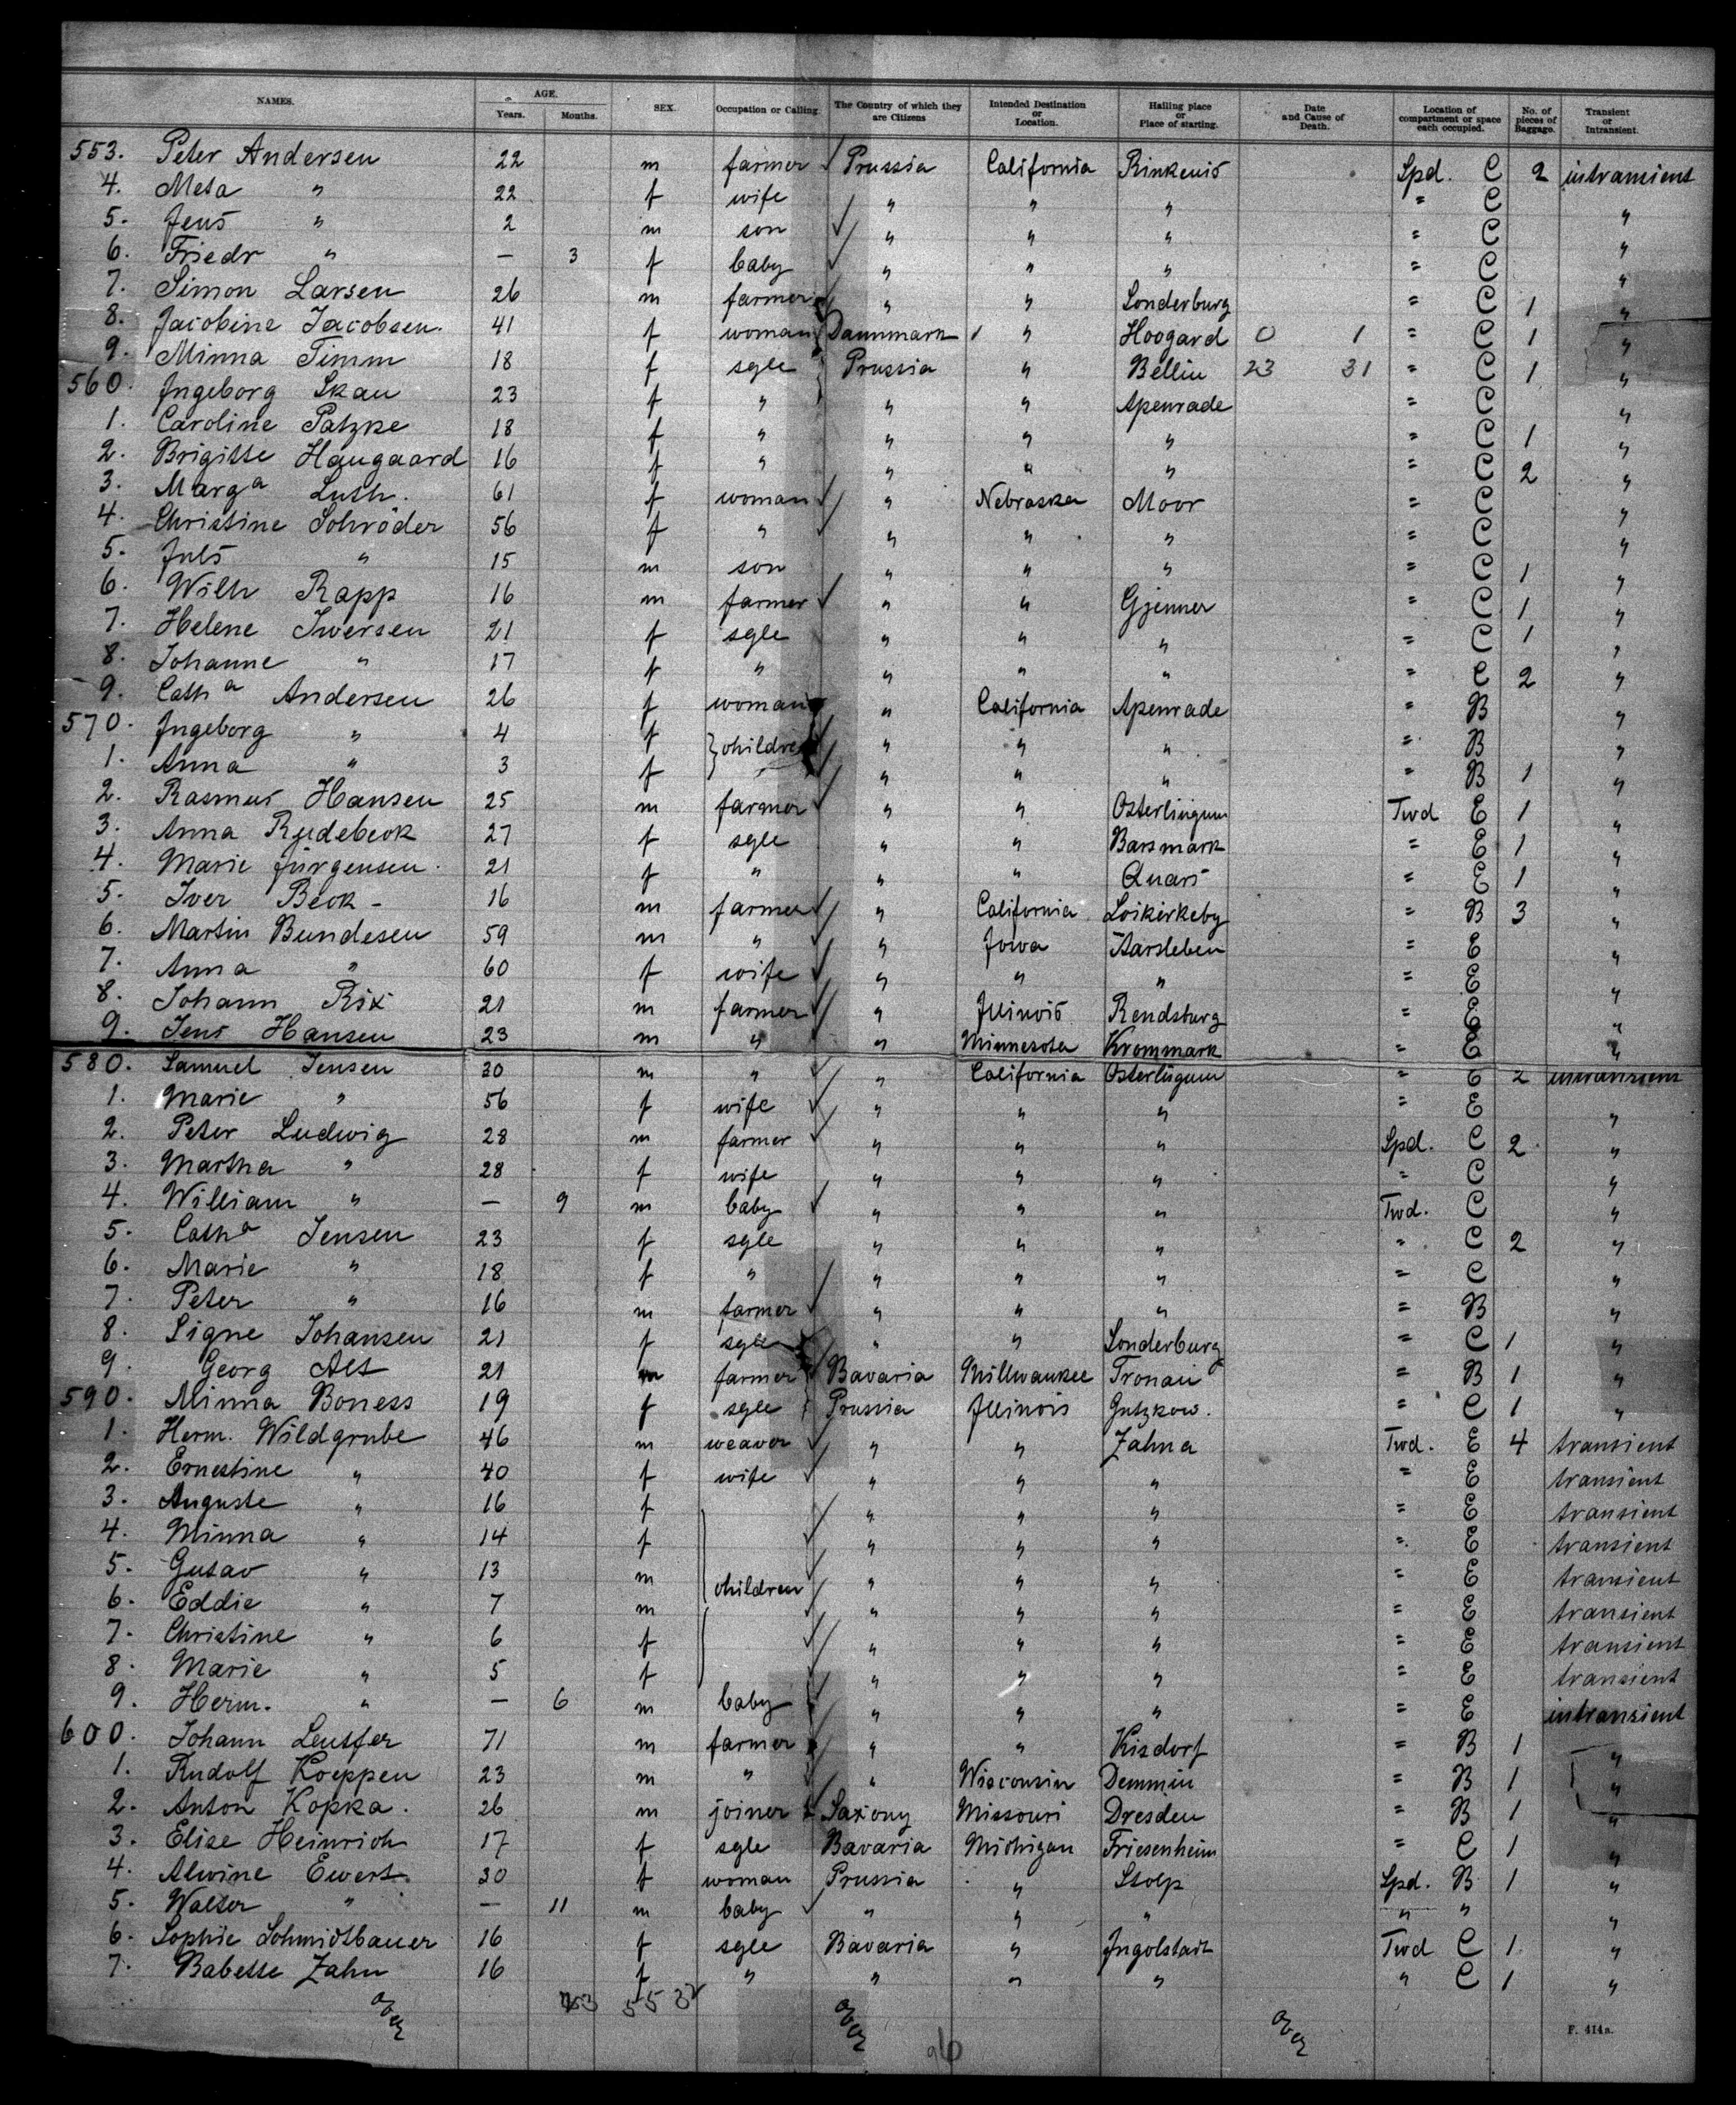 NAMES. AGE. Years. Months. SEX. Occupation or Calling. The Country of which they are Citizens Intended Destination or Location. Hailing place or Place of starting. Date and Cause of Death. Location of compartment or space each occupied. No. of pieces of Baggage. Transient or Intransient.
553. Peter Andersen 22 m farmer Prussia California Rinkenis Spd. C 2 intransient
4. Meta " 22 f wife " " " " C "
5. Jens " 2 m son " " " " C "
6. Friedr " — 3 f baby " " " " C "
7. Simon Larsen 26 m farmer " " Sonderburg " C 1 "
8. Jacobine Jacobsen. 41 f woman Dannmark " Hoogard 0 1 " C 1 "
9. Minna Timm 18 f sgle Prussia " Bellin 23 31 " C 1 "
560. Ingeborg Skau 23 f " " " Apenrade " C "
1. Caroline Patzke 18 f " " " " " C 1 "
2. Brigitte Haugaard 16 f " " " " " C 2 "
3. Marga Luth. 61 f woman " Nebraska Moor " C "
4. Christine Schröder 56 f " " " " " C "
5. Juls " 15 m son " " " " C 1 "
6. Wilh Rapp 16 m farmer " " Gjenner " C 1 "
7. Helene Iwersen 21 f sgle " " " " C 1 "
8. Johanne " 17 f " " " " " C 2 "
9. Catha Andersen 26 f woman " California Apenrade " B "
570. Ingeborg " 4 f } children " " " " B "
1. Anna " 3 f " " " " B 1 "
2. Rasmus Hansen 25 m farmer " " Osterlügum Twd E 1 "
3. Anna Rydebeck 27 f sgle " " Barsmark " E 1 "
4. Marie Jürgensen. 21 f " " " Quars " E 1 "
5. Iver Beck - 16 m farmer " California Loikirkeby " B 3 "
6. Martin Bundesen 59 m " " Iowa Aarsleben " E "
7. Anna " 60 f wife " " " " E "
8. Johann Rix 21 m farmer " Illinois Rendsburg " E "
9. Jens Hansen 23 m " " Minnesota Krommark " E "
580. Samuel Jensen 30 m " " California Osterlügum " E 2 intransient
1. Marie " 56 f wife " " " " E "
2. Peter Ludwig 28 m farmer " " " Spd. C 2 "
3. Martha " 28 f wife " " " " C "
4. William " — 9 m baby " " " Twd. C "
5. Catha Jensen 23 f sgle " " " " C 2 "
6. Marie " 18 f " " " " " C "
7. Peter " 16 m farmer " " " " B "
8. Signe Johansen 21 f sgle " " Sonderburg " C 1 "
9. Georg Alt 21 m farmer Bavaria Millwaukee Tronau " B 1 "
590. Minna Boness 19 f sgle Prussia Illinois Gutzkow. " C 1 "
1. Herm. Wildgrube 46 m weaver " " Zahna Twd. E 4 transient
2. Ernestine " 40 f wife " " " " E transient
3. Auguste " 16 f " " " " E transient
4. Minna " 14 f " " " " E transient
5. Gustav " 13 m children " " " " E transient
6. Eddie " 7 m " " " " E transient
7. Christine " 6 f " " " " E transient
8. Marie " 5 f " " " " E transient
9. Herm. " — 6 m baby " " " " E intransient
600. Johann Leutfer 71 m farmer " " Kisdorf " B 1 "
1. Rudolf Koeppen 23 m " " Wisconsin Demmin " B 1 "
2. Anton Kopka. 26 m joiner Saxony Missouri Dresden " B 1 "
3. Elise Heinrich 17 f sgle Bavaria Michigan Friesenheim " C 1 "
4. Alwine Ewert. 30 f woman Prussia " Stolp Spd. B 1 "
5. Walter " — 11 m baby " " " " " "
6. Sophie Schmidtbauer 16 f sgle Bavaria " Ingolstadt Twd C 1 "
7. Babette Zahn 16 f " " " " " C 1 "
over over over
96
F. 414a.